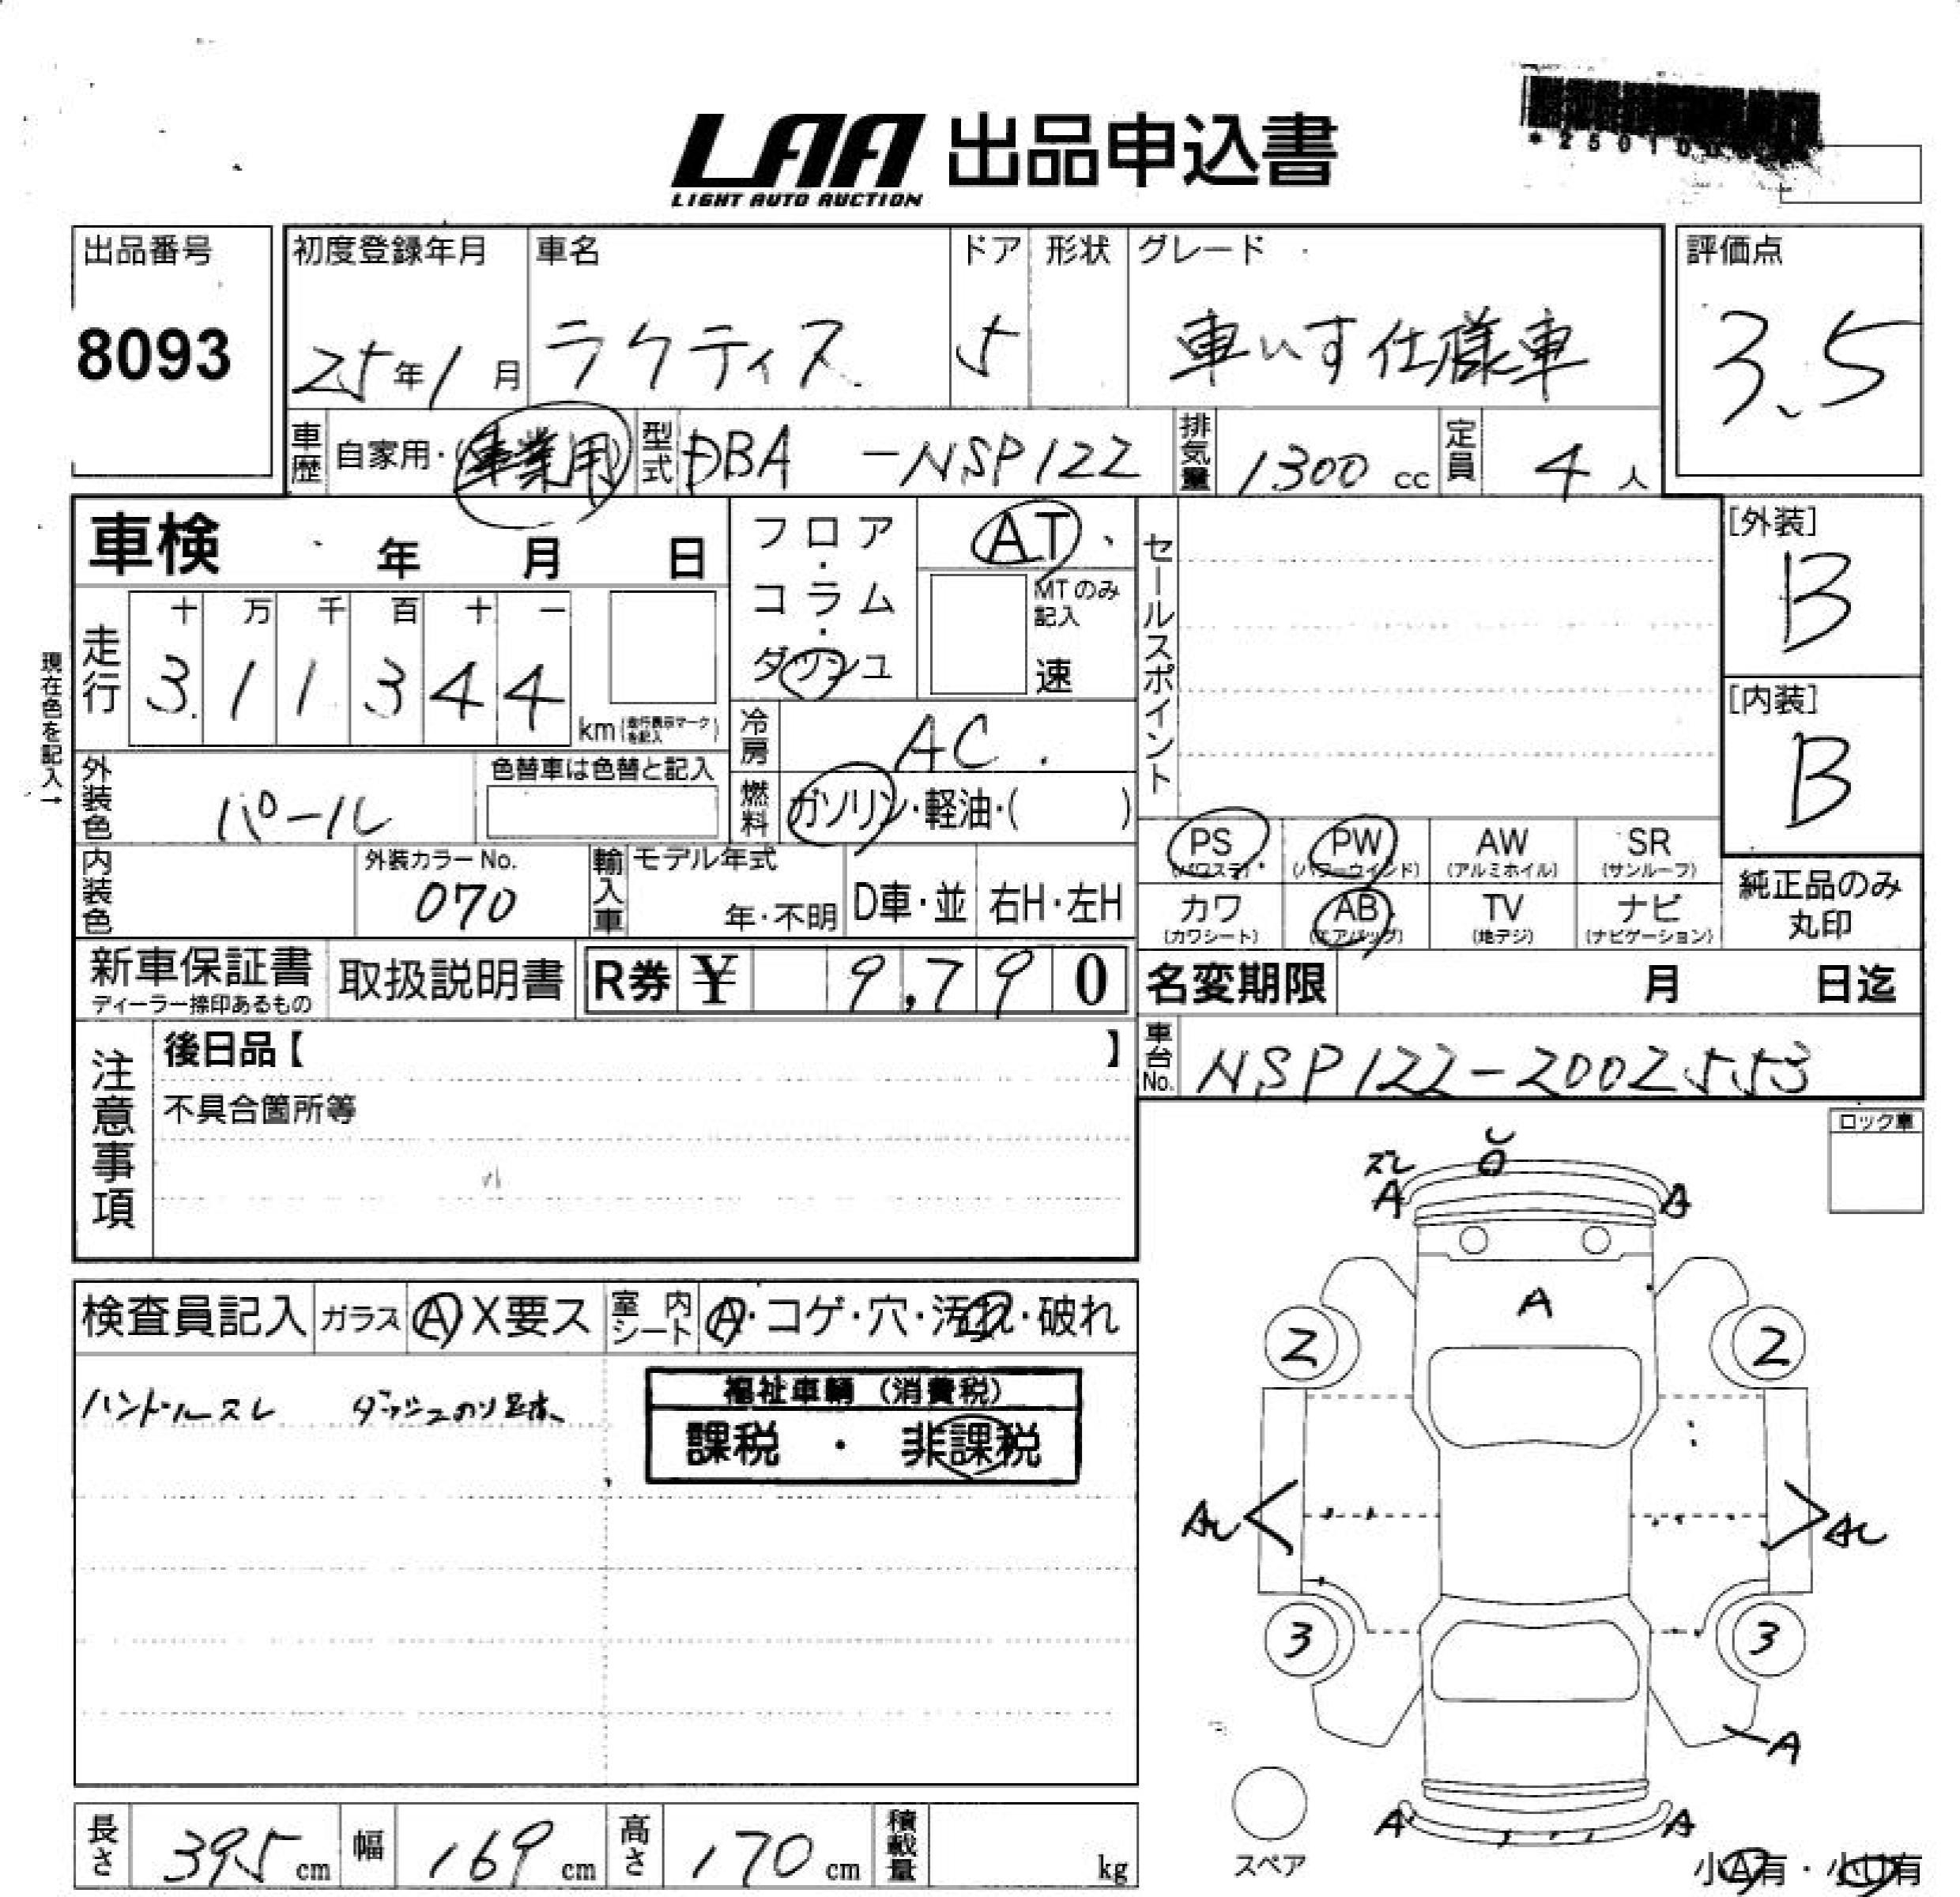 LAA 出品申込書
LIGHT AUTO AUCTION
出品番号
8093
初度登録年月
25年1月
車名
ラクティス
ドア
5
形状
グレード
車いす仕様車
評価点
3.5
車歴 自家用・(事業用)
型式 DBA -NSP122
排気量 1300 cc
定員 4 人
車検 年 月 日
フロア・コラム・ダッシュ
AT
MTのみ記入
速
走行
十 万 千 百 十 一
3 1 1 3 4 4
km (走行表示マークを記入)
現在色を記入→
外装色 パール
色替車は色替と記入
冷房 AC
燃料 ガソリン・軽油・( )
内装色
外装カラーNo.
070
輸入車 モデル年式
年・不明
D車・並
右H・左H
セールスポイント
[外装]
B
[内装]
B
PS (パワステ)
PW (パワーウインド)
AW (アルミホイル)
SR (サンルーフ)
カワ (カワシート)
AB (エアバッグ)
TV (地デジ)
ナビ (ナビゲーション)
純正品のみ
丸印
新車保証書
ディーラー捺印あるもの
取扱説明書
R券 ¥ 9,790
名変期限 月 日迄
車台No. NSP122-2002553
注意事項
後日品【 】
不具合箇所等
ロック車
検査員記入
ガラス A X要ス
室内シート A・コゲ・穴・汚れ・破れ
ハンドルスレ
福祉車輌(消費税)
課税・非課税
ズレ
A
A
A
2
2
A
A
3
3
A
A
A
スペア
小A有・小U有
長さ 395 cm
幅 169 cm
高さ 170 cm
積載量 kg